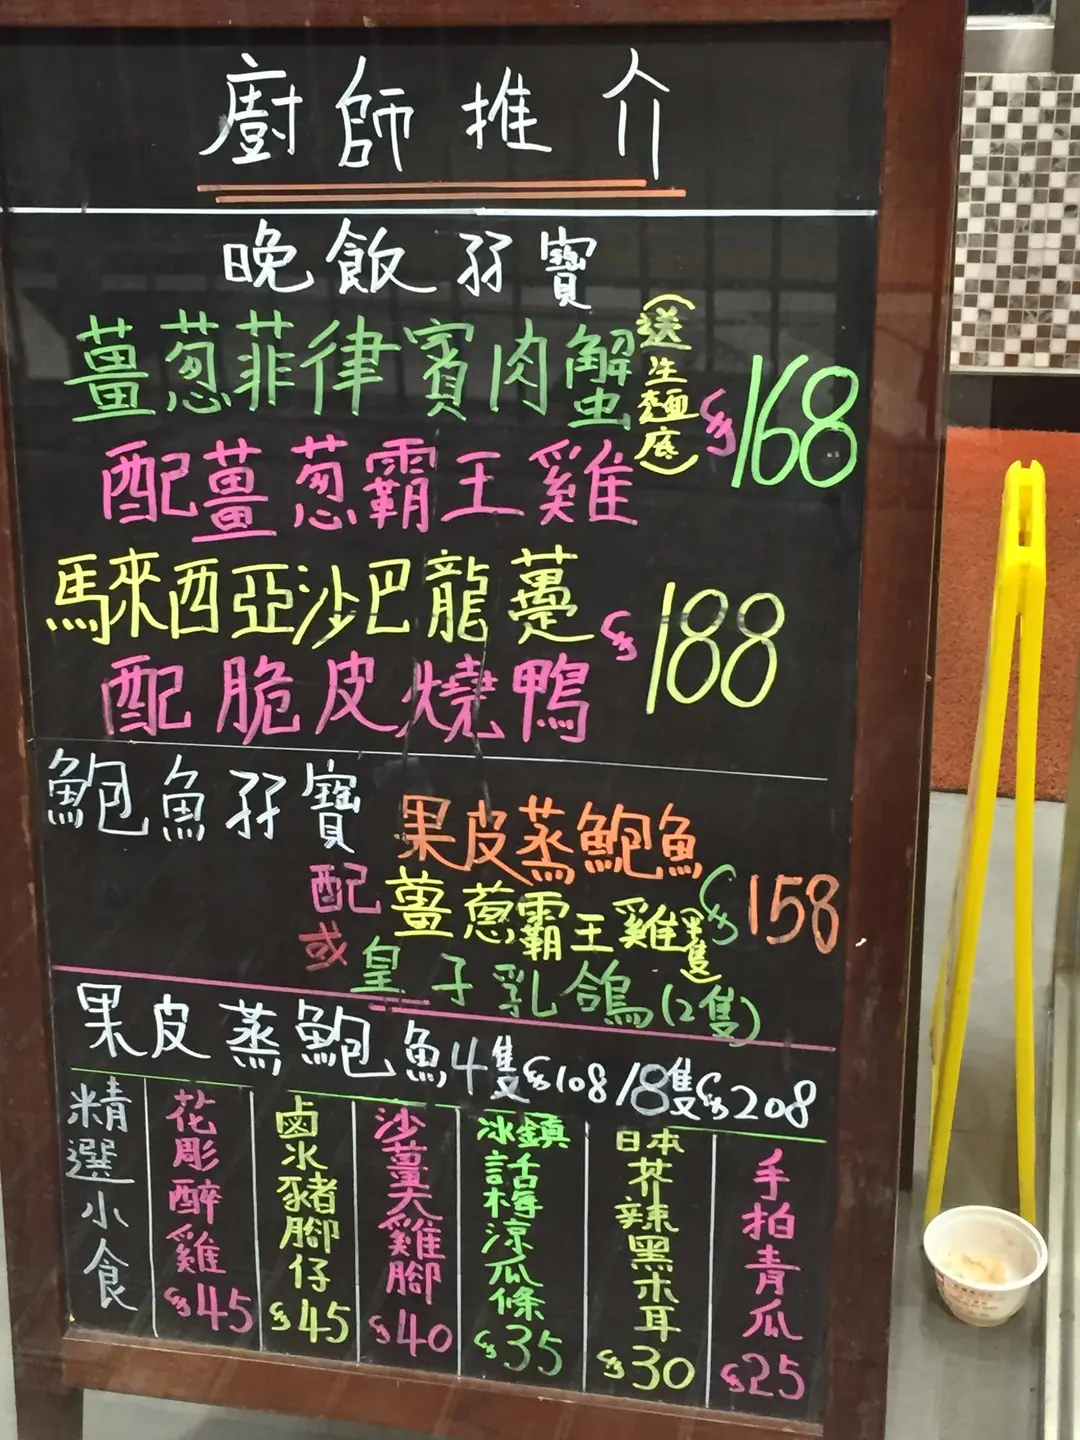 廚師推介
晚飯孖寶
薑葱菲律賓肉蟹
(送生麵底)
$168
配薑葱霸王雞
馬來西亞沙巴龍躉
$188
配脆皮燒鴨
鮑魚孖寶
果皮蒸鮑魚
配薑蔥霸王雞(半隻)
$158
或皇子乳鴿(2隻)
果皮蒸鮑魚4隻$108/8隻$208
精選小食
花彫醉雞
$45
鹵水豬腳仔
$45
沙薑大雞腳
$40
冰鎮話梅涼瓜條
$35
日本芥辣黑木耳
$30
手拍青瓜
$25